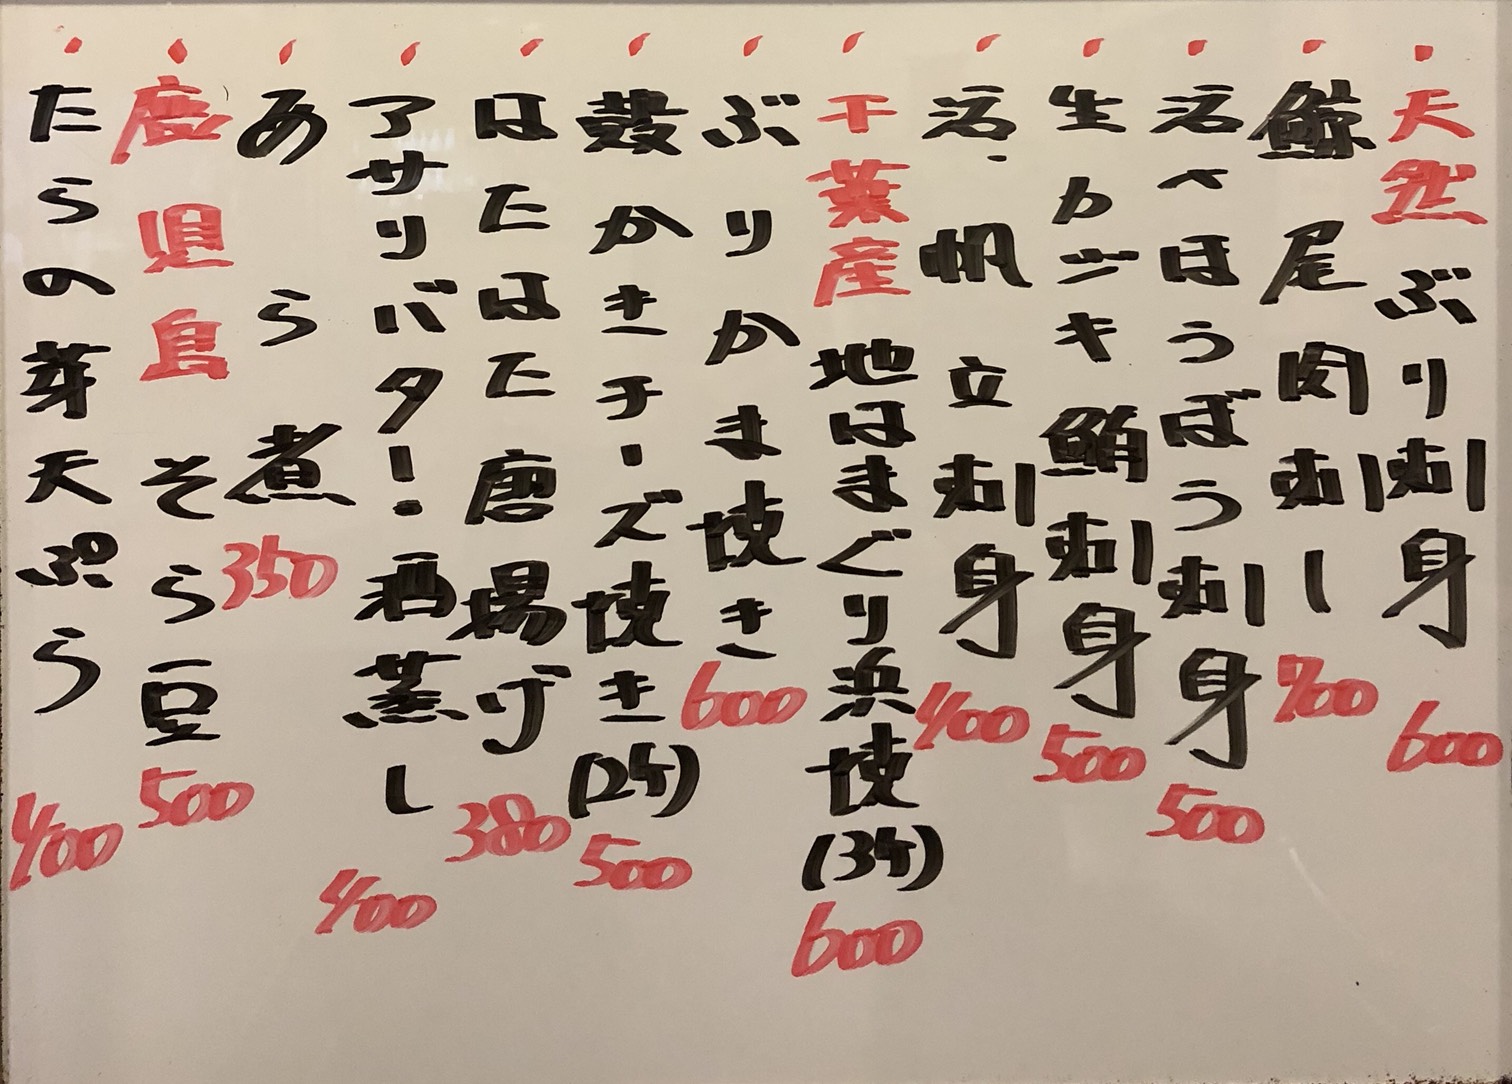 ・天然ぶり刺身 600
・鯨尾肉刺し 700
・活〆ほうぼう刺身 500
・生カジキ鮪刺身 500
・活帆立刺身 400
・千葉産地はまぐり浜焼(3ケ) 600
・ぶりかま焼き 600
・殻かきチーズ焼き(2ケ) 500
・はたはた唐揚げ 380
・アサリバター酒蒸し 400
・あら煮 350
・鹿児島そら豆 500
・たらの芽天ぷら 400